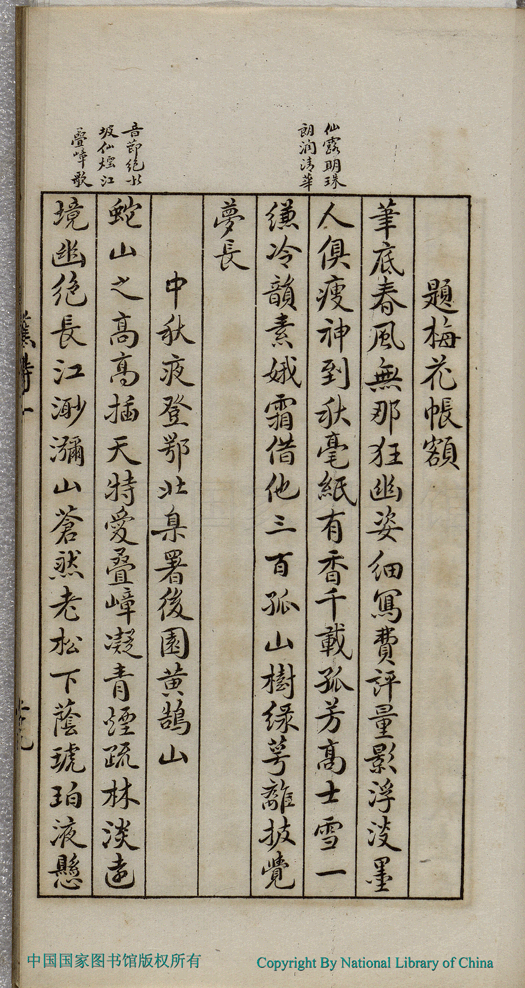 仙露明珠
朗潤清華
題梅花帳額
筆底春風無那狂幽姿細寫費評量影浮淺墨
人俱瘦神到秋毫紙有香千載孤芳高士雪一
縑冷韻素娥霜借他三百孤山樹綠萼離披覺
夢長
中秋夜登鄂北臬署後園黄鵠山
音節絶似
坡仙煙江
疊嶂歌
蛇山之高高插天特愛疊嶂凝青煙疏林淡遠
境幽絶長江渺瀰山蒼然老松下蔭琥珀液懸
中国国家图书馆版权所有
Copyright By National Library of China